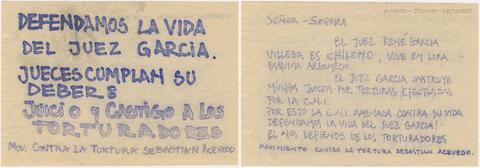 DEFENDAMOS LA VIDA
DEL JUEZ GARCIA.
JUECES CUMPLAN SU
DEBER :
JUICIO Y CASTIGO A LOS
TORTURADORES
MOV. CONTRA LA TORTURA SEBASTIAN ACEVEDO.
SEÑOR - SEÑORA
EL JUEZ RENÉ GARCIA
VILLEGAS ES CHILENO, VIVE EN LIRA
ESQUINA ARGOMEDO.
EL JUEZ GARCIA INSTRUYE
MUCHOS JUICIOS POR TORTURAS EFECTUADAS
POR LA C.N.I.
POR ESTO LA C.N.I AMENAZA CONTRA SU VIDA
DEFENDAMOS LA VIDA DEL JUEZ GARCIA!
EL NOS DEFIENDE DE LOS TORTURADORES
MOVIMIENTO CONTRA LA TORTURA SEBASTIAN ACEVEDO.